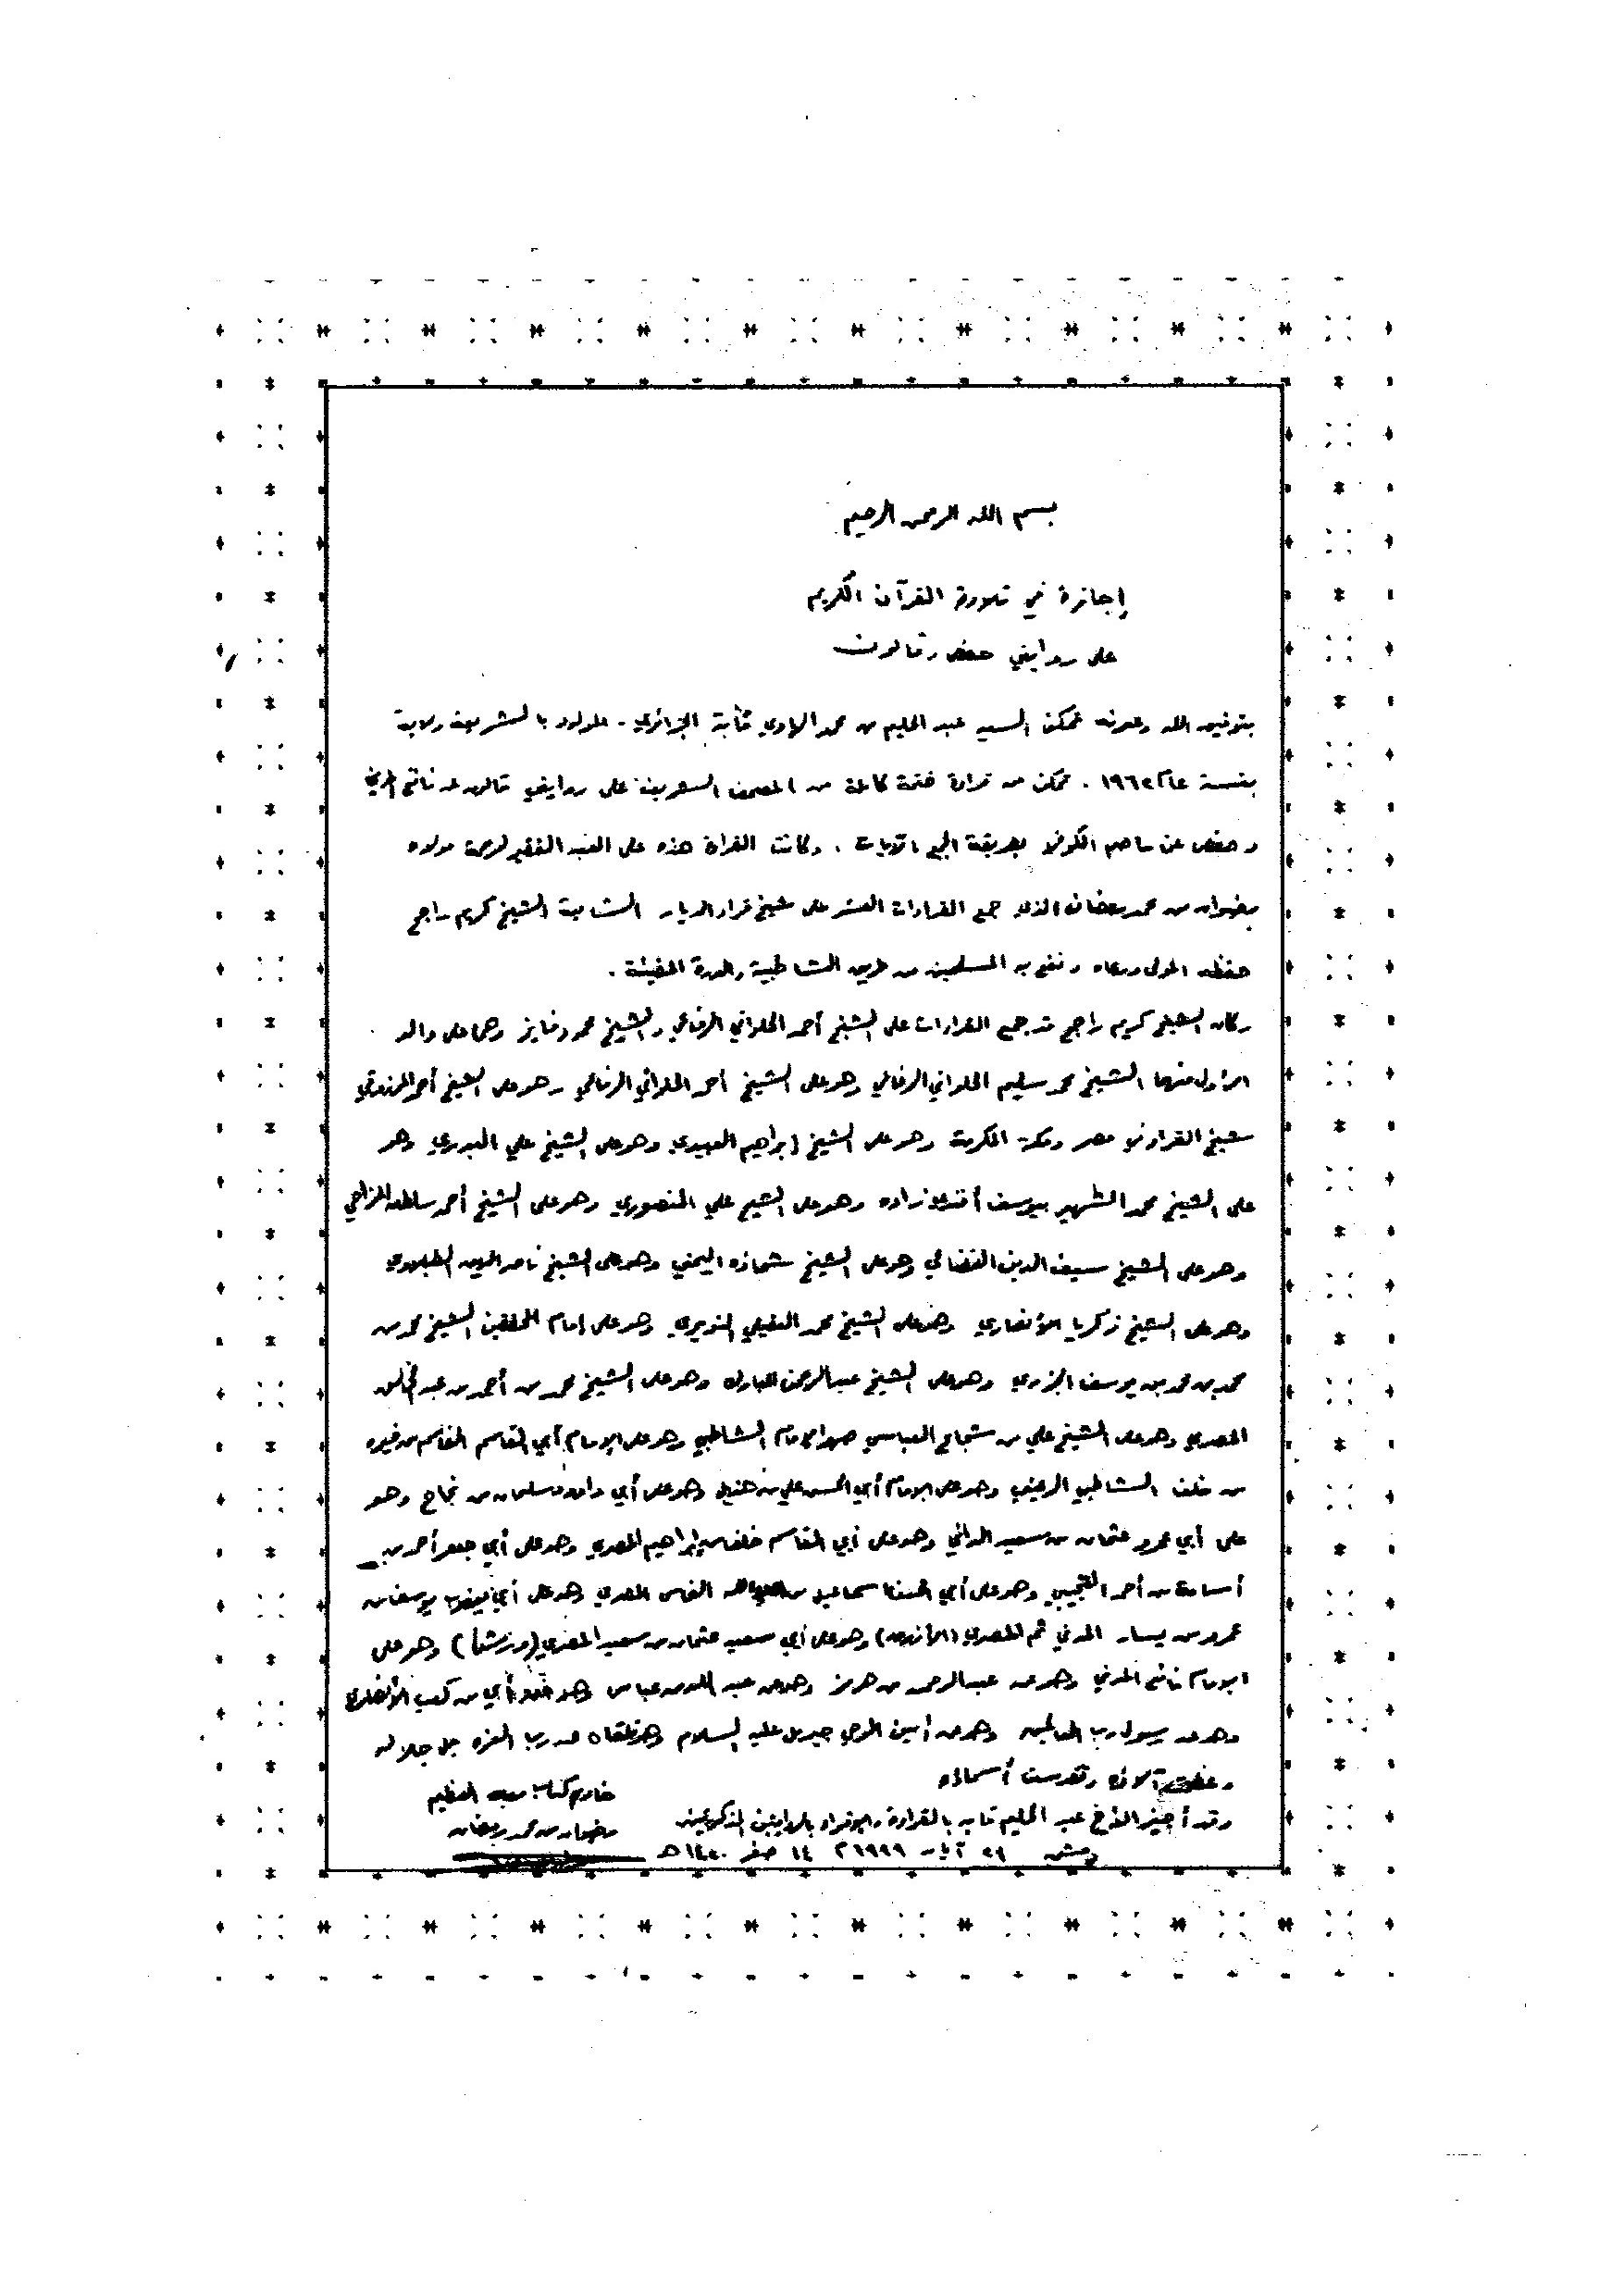 بسم الله الرحمن الرحيم
إجازة في تلاوة القرآن الكريم
على روايتي حفص وقالون
بتوفيق الله وعونه تمكن السيد عبد الحليم بن محمد الهادي قابة الجزائري - المولود بالشريعة ولاية
بتبسة عام ١٩٦٢ . تمكن من قراءة ختمة كاملة من المصحف الشريف على روايتي قالون عن نافع المدني
وحفص عن عاصم الكوفي بطريقة الجمع بالآيات . وكانت القراءة هذه على العبد الفقير لرحمة مولاه
رضوان بن محمد رمضان الذي جمع القراءات العشر على شيخ قراء الديار الشامية الشيخ كريم راجح
حفظه المولى ورعاه ونفع به المسلمين من طريق الشاطبية والدرة المضيئة .
وكان الشيخ كريم راجح قد جمع القراءات على الشيخ أحمد الحلواني الرفاعي والشيخ محمود فايز وهما على والد
الأول منهما الشيخ محمد سليم الحلواني الرفاعي وهو على الشيخ أحمد الحلواني الرفاعي وهو على الشيخ أحمد المرزوقي
شيخ القراء في مصر ومكة المكرمة وهو على الشيخ إبراهيم العبيدي وهو على الشيخ علي البدري وهو
على الشيخ محمد الشهير بيوسف أفندي زاده وهو على الشيخ علي المنصوري وهو على الشيخ أحمد سلطان المزاحي
وهو على الشيخ سيف الدين الفضالي وهو على الشيخ شحاذه اليمني وهو على الشيخ ناصر الدين الطبلاوي
وهو على الشيخ زكريا الأنصاري وهو على الشيخ محمد العقيلي النويري وهو على إمام المحققين الشيخ محمد بن
محمد بن محمد بن يوسف الجزري وهو على الشيخ عبد الرحمن المبارك وهو على الشيخ محمد بن أحمد بن عبد الخالق
المصري وهو على الشيخ علي بن شجاع العباسي صهر الإمام الشاطبي وهو على الإمام أبي القاسم القاسم بن فيره
بن خلف الشاطبي الرعيني وهو على الإمام أبي الحسن علي بن هذيل وهو على أبي داود سليمان بن نجاح وهو
على أبي عمرو عثمان بن سعيد الداني وهو على أبي القاسم خلف بن إبراهيم المصري وهو على أبي جعفر أحمد بن
أسامة بن أحمد التجيبي وهو على أبي الحسن اسماعيل بن عبد الله النحاس المصري وهو على أبي يعقوب يوسف بن
عمرو بن يسار المدني ثم المصري (الأزرق) وهو على أبي سعيد عثمان بن سعيد المصري (ورش) وهو على
الإمام نافع المدني وهو عن عبد الرحمن بن هرمز وهو عن عبد الله بن عباس وهو عن أبي بن كعب الأنصاري
وهو عن رسول رب العالمين وهو عن أمين الوحي جبريل عليه السلام وهو تلقاه عن رب العزة جل جلاله
وعظمت آلاؤه وتقدست أسماؤه
وقد أجيز الأخ عبد الحليم قابه بالقراءة والإقراء بالروايتين المذكورتين
دمشق ٢٩ آيار ١٩٩٩ م ١٤ صفر ١٤٢٠ هـ
خادم كتاب ربه العظيم
رضوان بن محمد رمضان